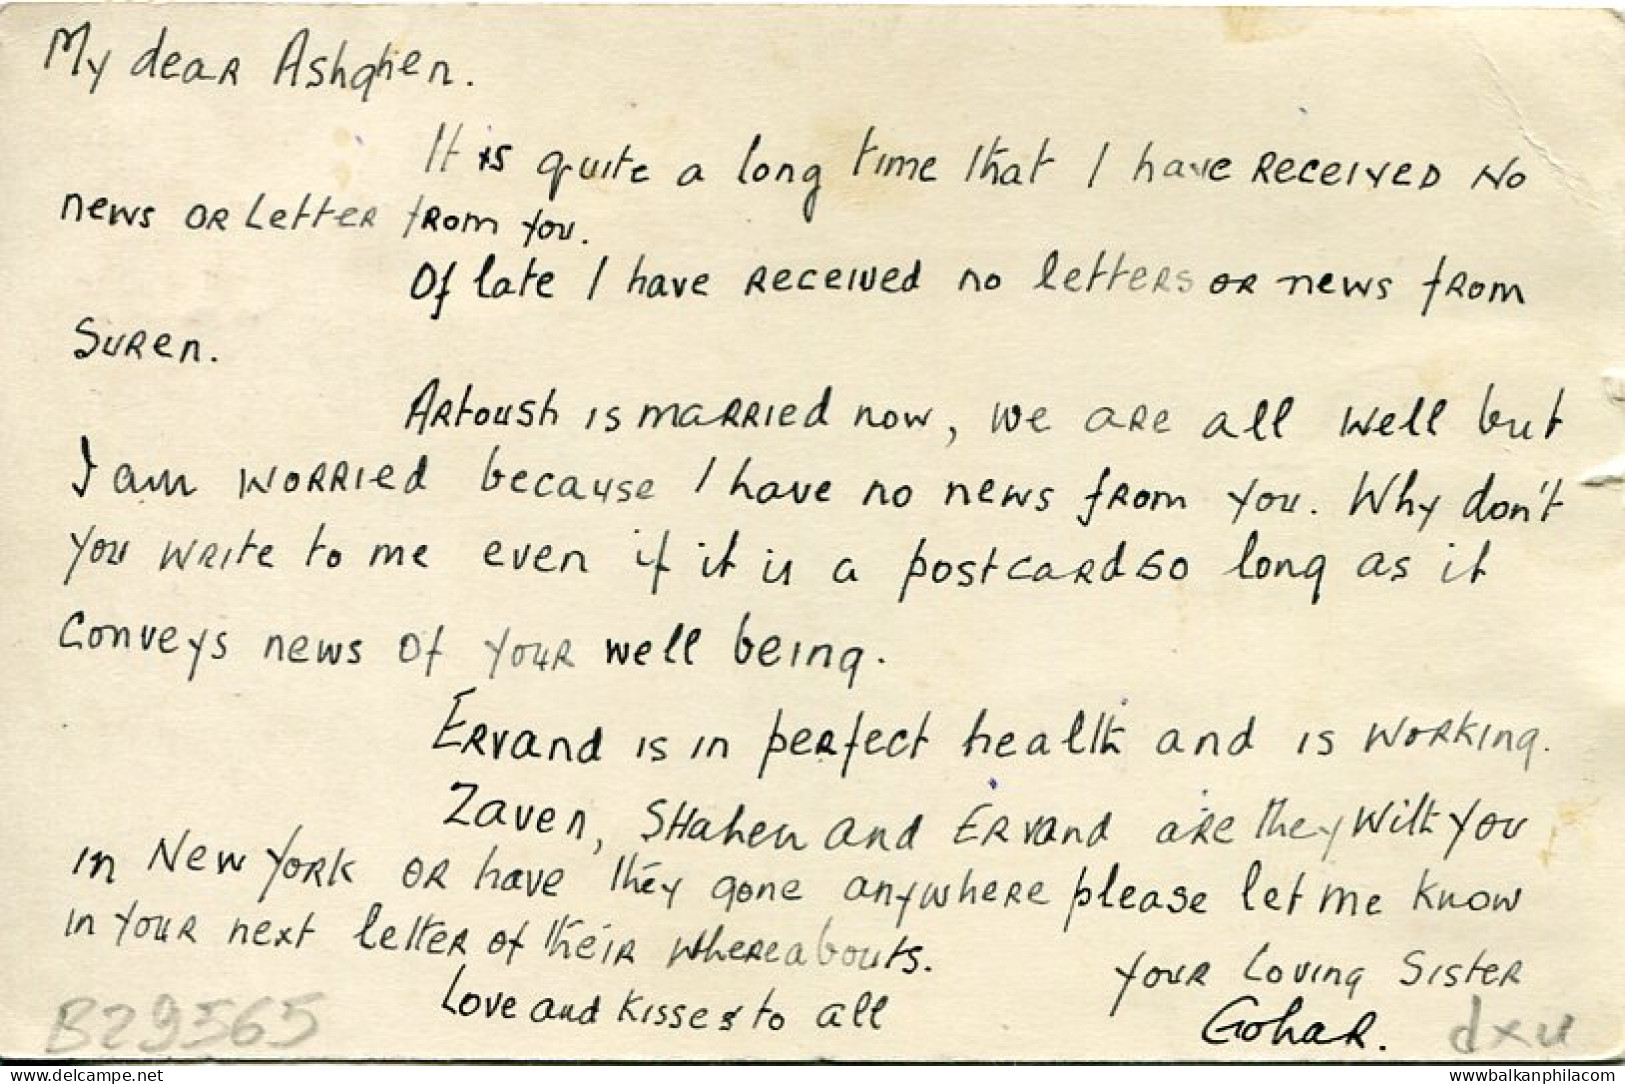 My dear Ashghen.
It is quite a long time that I have Received No
news or Letter from you.
Of late I have received no letters or news from
Suren.
Artoush is married now, we are all well but
I am worried because I have no news from you. Why don't
you write to me even if it is a postcard so long as it
Conveys news of your well being.
Ervand is in perfect health and is working.
Zaven, Shahen and Ervand are they with you
in New York or have they gone anywhere please let me know
in your next letter of their whereabouts.
Love and kisses to all
Your Loving Sister
Gohar.
B29565
dxu
wwwbalkanphilacom
www.delcampe.net